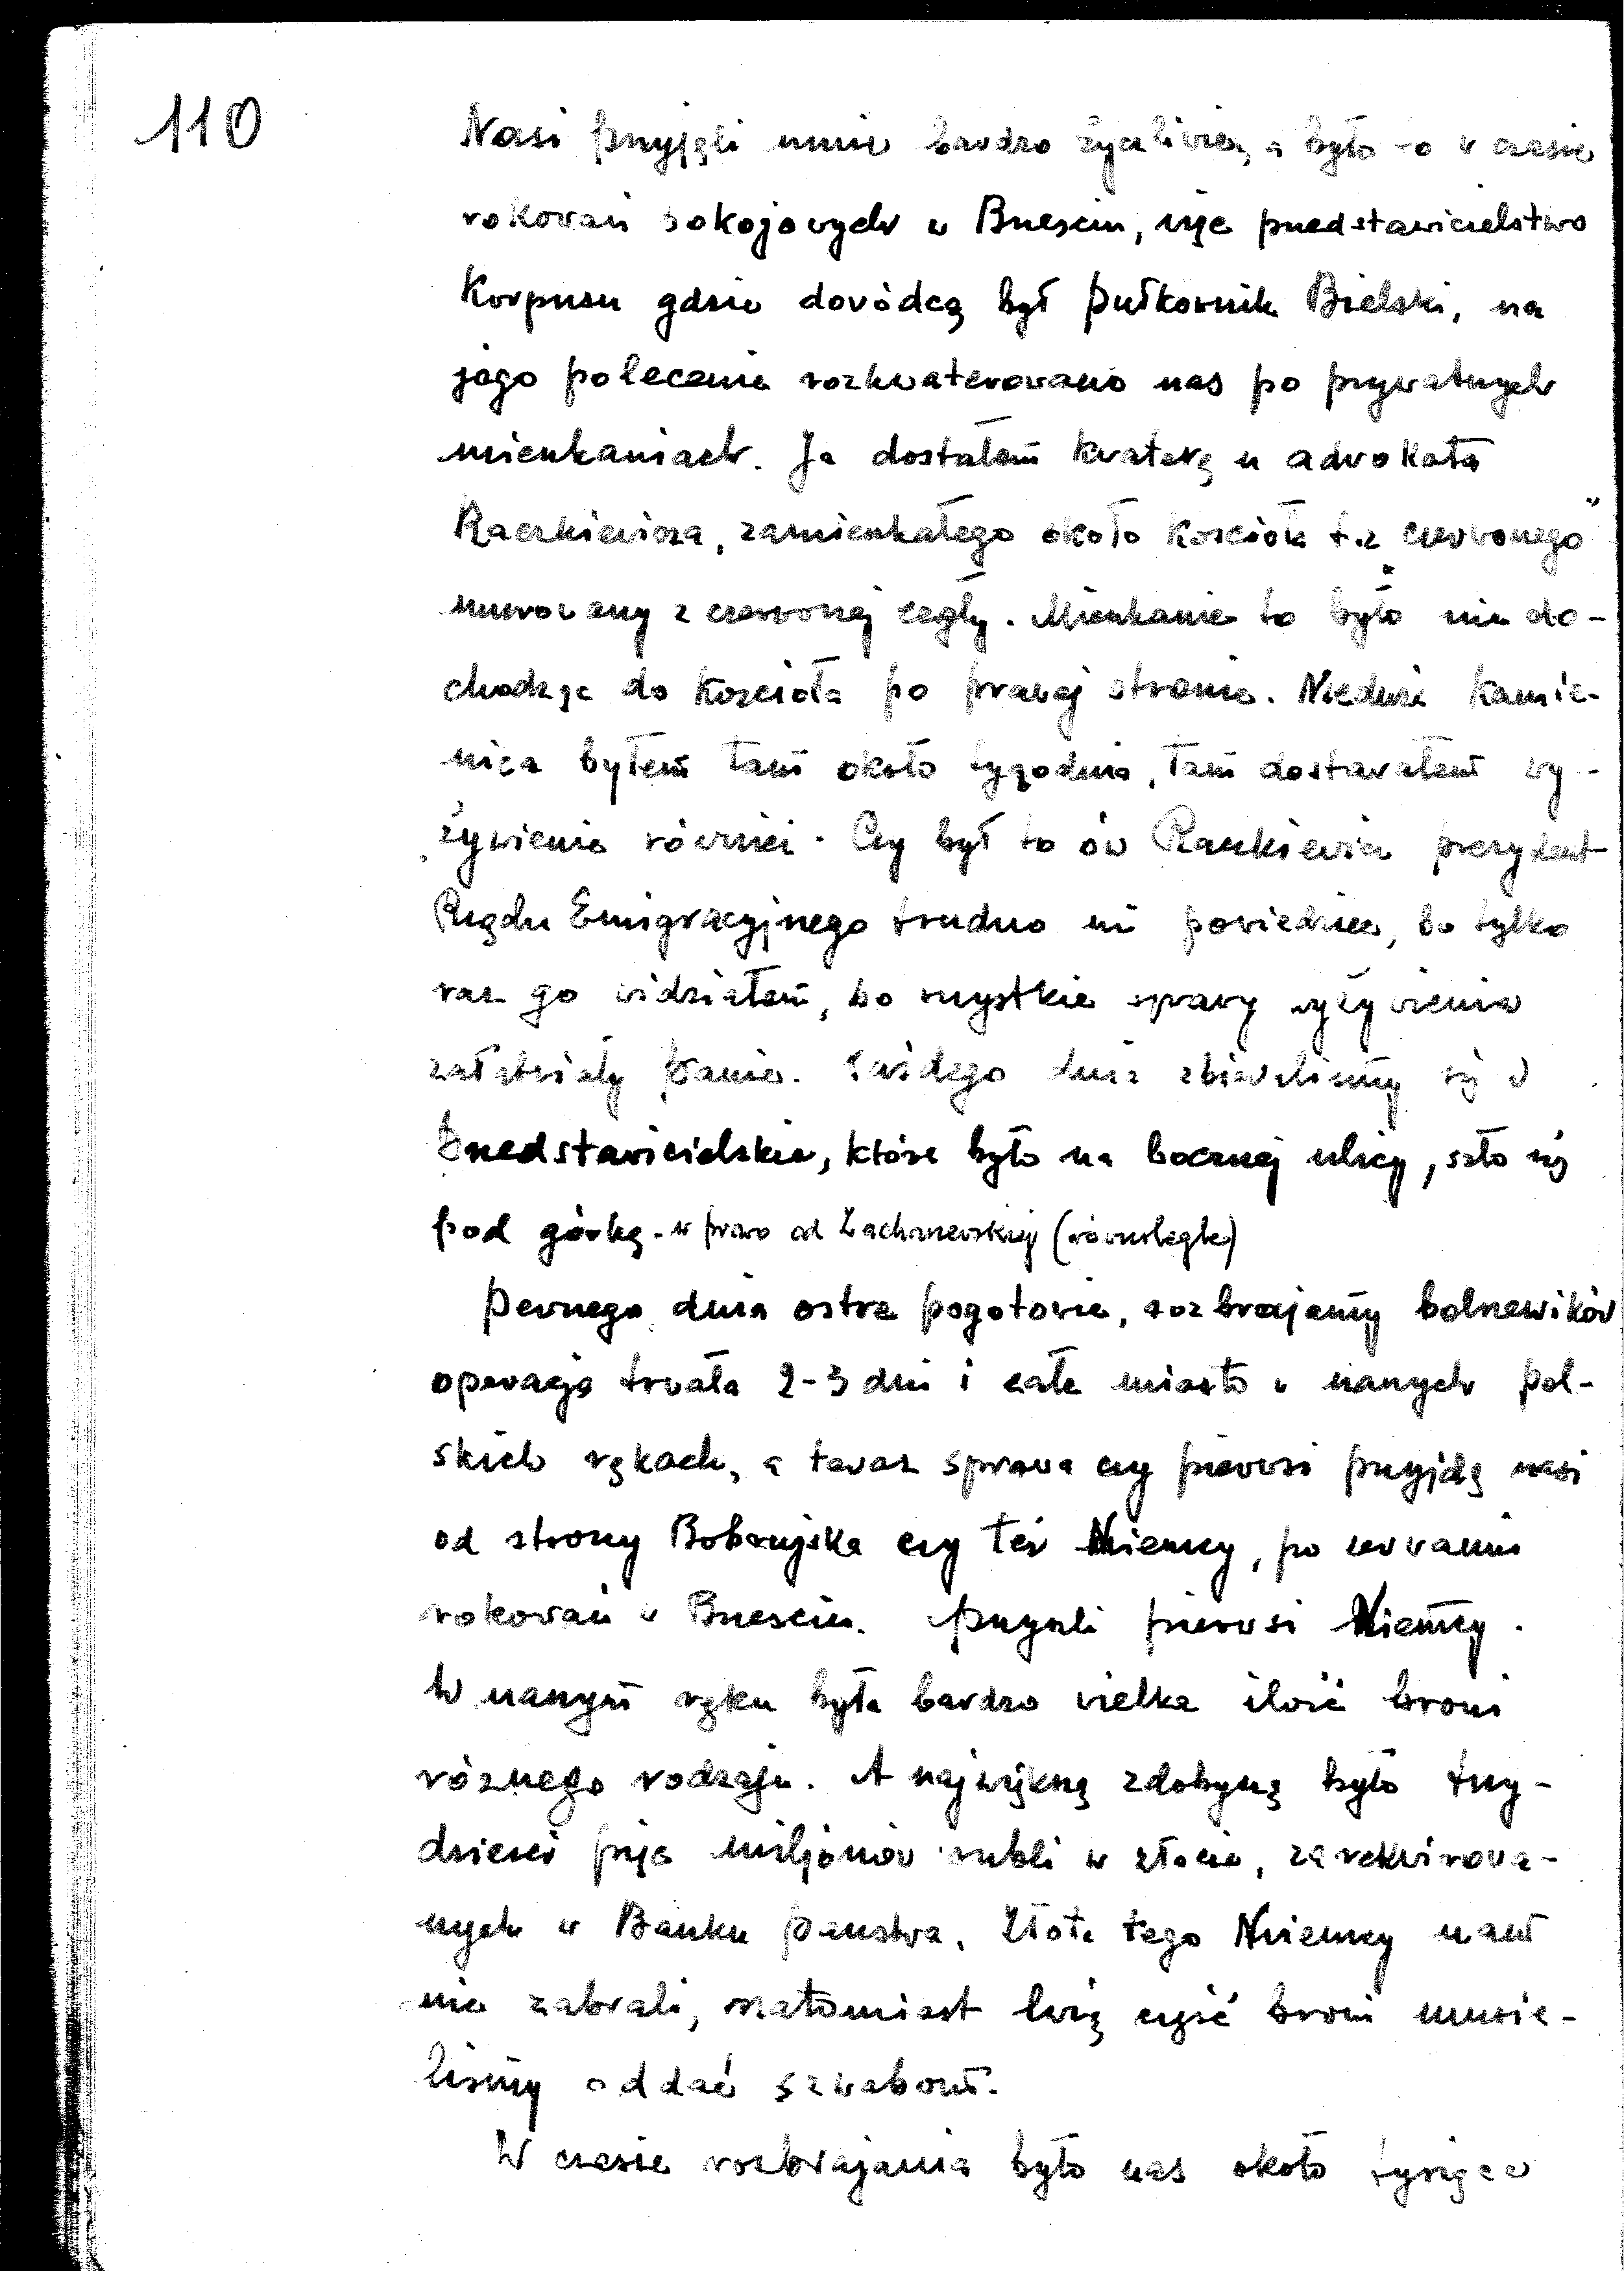 110
Nasi przyjęli mnie bardzo życzliwie, a było to w czasie
rokowań pokojowych w Brześciu, więc przedstawicielstwo
Korpusu gdzie dowódcą był pułkownik Bielski, na
jego polecenie rozkwaterowano nas po prywatnych
mieszkaniach. Ja dostałem kwaterę u adwokata
Raczkiewicza, zamieszkałego około kościoła t.z „czerwonego”
murowany z czerwonej cegły. Mieszkanie to było nie do-
chodząc do kościoła po prawej stronie. Nieduża kamie-
nica byłem tam około tygodnia, tam dostawałem wy-
żywienie również. Czy był to ów Raczkiewicz prezydent
Rządu Emigracyjnego trudno mi powiedzieć, bo tylko
raz go widziałem, bo wszystkie sprawy wyżywienia
załatwiały Panie. Każdego dnia zbieraliśmy się w
Przedstawicielstwie, które było na bocznej ulicy, szło się
pod górkę - w prawo od Zacharzewskiej (równoległe)
Pewnego dnia ostre pogotowie, rozbrajamy bolszewików
operacja trwała 2-3 dni i całe miasto w naszych pol-
skich rękach, a teraz sprawa czy pierwsi przyjdą nasi
od strony Bobrujska czy też Niemcy, po zerwaniu
rokowań w Brześciu. Przyszli pierwsi Niemcy.
W naszym ręku była bardzo wielka ilość broni
różnego rodzaju. A największą zdobyczą było trzy-
dzieści pięć miljonów rubli w złocie, zarekwirowa-
nych w Banku Państwa. Złota tego Niemcy nam
nie zabrali, natomiast lwią część broni musie-
liśmy oddać szwabom.
W czasie rozbrajania było nas około tysiąca